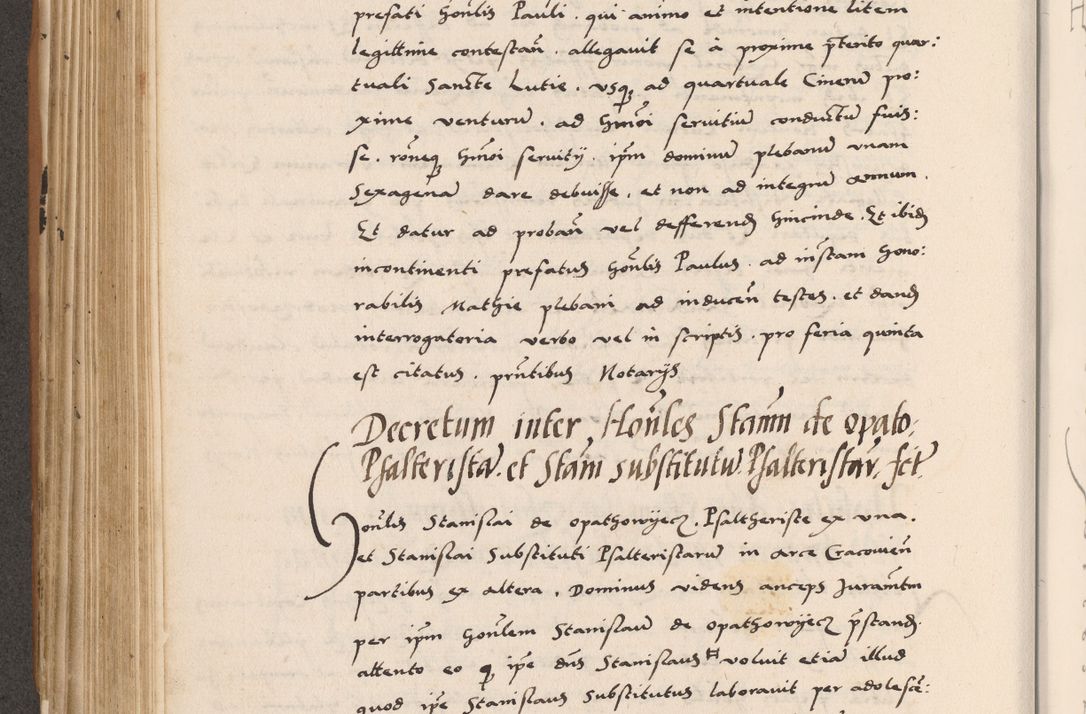 prefati Honlis Pauli . qui animo et intentione litem
legittime contestan̄ . allegavit se à proxime p̄terito quar:
tuali Sancte Lutie . usq̨ ad quartuale Cinerū pro:
xime venturū . ad hm̄oi servitiū conductū fuis:
se . rōneq̨ hm̄oi servitÿ . ip̄m dominū plebanū unam
Sexagenā dare debuisse . et non ad integrū annum .
Et datur ad proban̄ vel defferend hincinde . Et ibid
incontinenti prefatus Hon̄lis Paulus . ad instan̄ hono:
rabilis Mathie plebani ad inducen̄ testes . et dand
interrogatoria verbo . vel in scriptis . pro feria quinta
est citatus . pn̄tibus Notarÿs
Decretum inter Hon̄les Stan̄m de opato:
Psalteristā . et Stan̄ substitutū Psalteristar̄ . fct̄
Hon̄lis Stanislai de opathowÿecz . Psaltheriste ex una .
et Stanislai Substituti Psalteristarū in arce Cracovien̄
partibus ex altera . Dominus videns anceps Juramt̄m
per ip̄m Hon̄lem Stanislaū de opathowÿecz p̄stand .
attento eo q̨ ip̄e dn̄s Stanislaus voluit etiā illud
quod ip̄e Stanislaus Substitutus laboravit per adolesce: